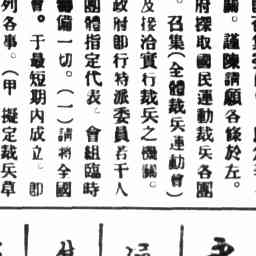 關。謹陳請願各條於左。
府採取國民運動裁兵各團
。召集(全體裁兵運動會)
及接洽實行裁兵之機關。
政府卽行特派委員若干人
團體指定代表。會組臨時
籌備一切。(一)請將全國
會。于最短期內成立。卽
列各事。(甲)擬定裁兵草